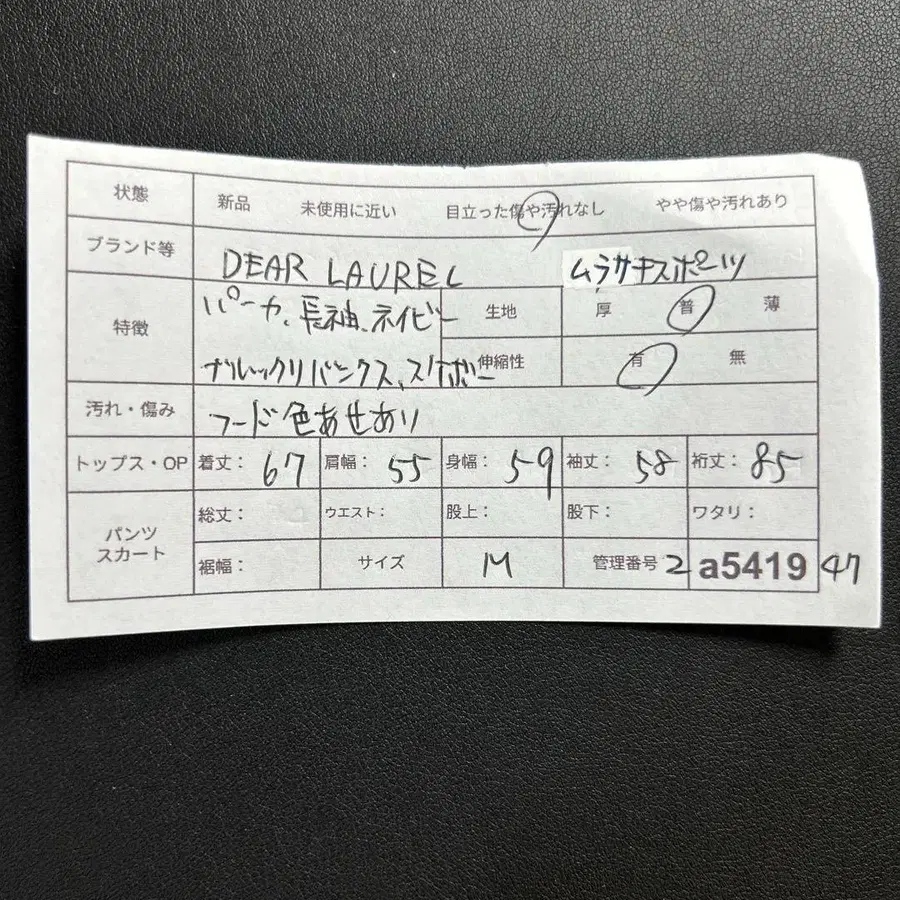 状態 新品 未使用に近い 目立った傷や汚れなし やや傷や汚れあり
ブランド等 DEAR LAUREL ムラサキスポーツ
特徴 パーカ、長袖、ネイビー 生地 厚 普 薄
ナルックリバンクス、スケボー 伸縮性 有 無
汚れ・傷み フード色あせあり
トップス・OP 着丈: 67 肩幅: 55 身幅: 59 袖丈: 58 裄丈: 85
パンツ スカート 総丈: ウエスト: 股上: 股下: ワタリ:
裾幅: サイズ M 管理番号 2 a5419 47